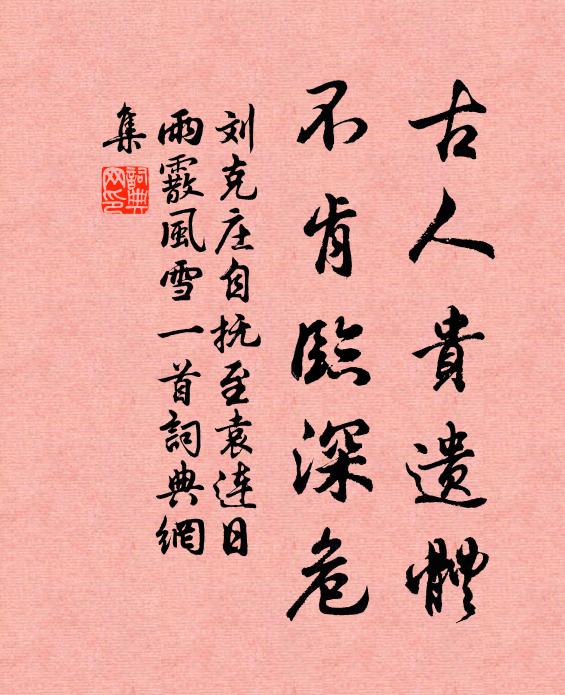 古人貴遺體
不肯臨深危
刘克庄自抚至袁连日
雨霰風雪一首詞典網
集
詞典網印